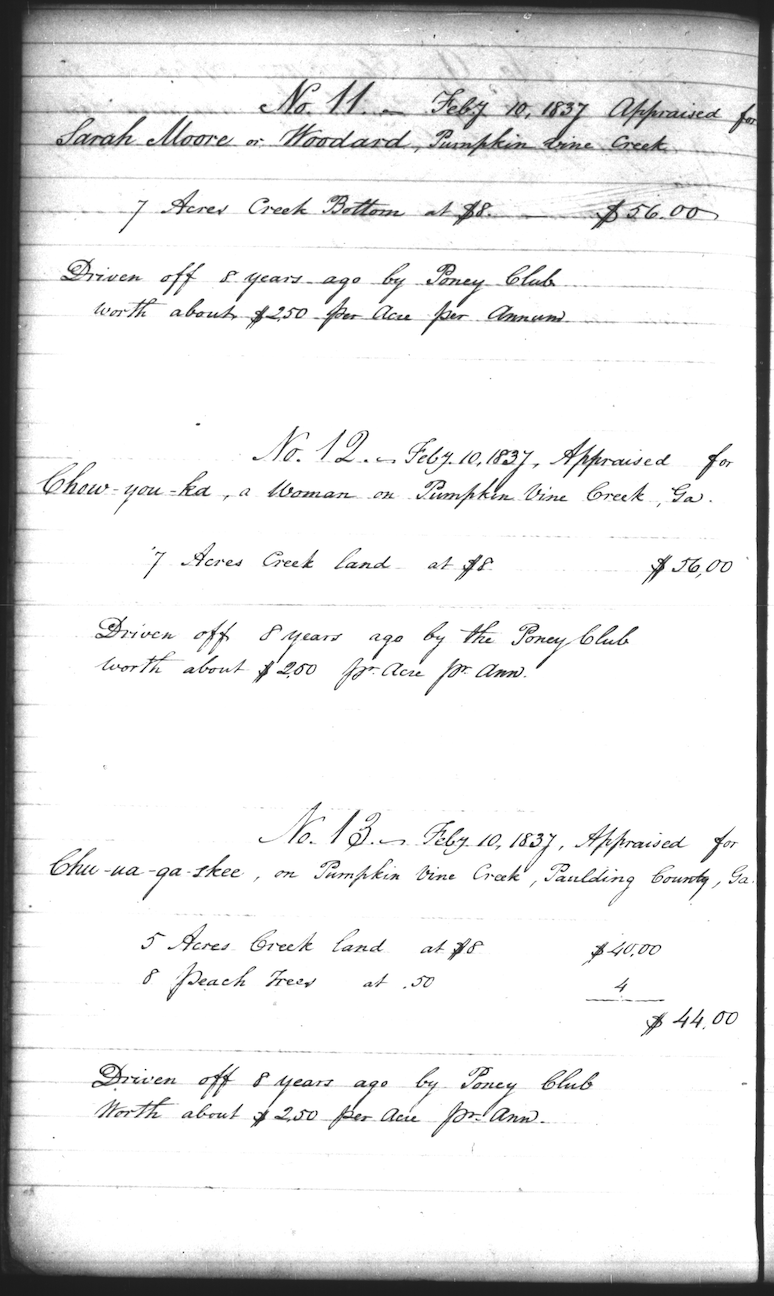 No. 11. - Feby 10, 1837 Appraised for
Sarah Moore or Woodard, Pumpkin Vine Creek.
7 Acres Creek Bottom at $8. — $56.00
Driven off 8 years ago by Poney Club
worth about $2.50 per Acre per Annum
No. 12. - Feby. 10, 1837, Appraised for
Chow-you-ka, a Woman on Pumpkin Vine Creek, Ga.
7 Acres Creek land at $8 $56,00
Driven off 8 years ago by the Poney Club
worth about $2.50 pr. Acre pr. Ann.
No. 13. - Feby 10, 1837, Appraised for
Chu-ua-ga-skee, on Pumpkin Vine Creek, Paulding County, Ga.
5 Acres Creek land at $8 $40.00
8 Peach Trees at .50 4
$44.00
Driven off 8 years ago by Poney Club
Worth about $2.50 per Acre pr. Ann.